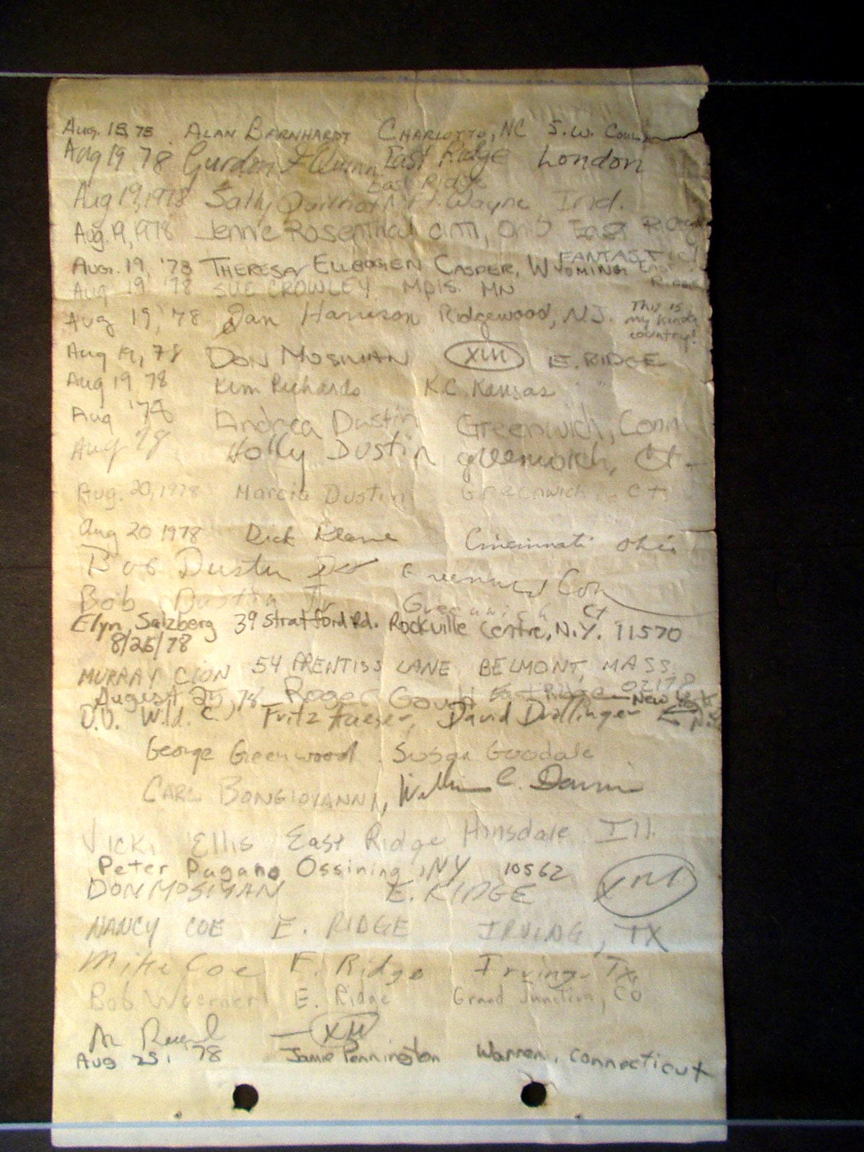 Aug. 18, 78 ALAN BARNHARDT CHARLOTTE, NC S.W.
Aug 19 78 Gurdon F Quinn East Ridge London
East Ridge
Aug 19, 1978 Sally Ft. Wayne Ind.
Aug. 19, 1978 Jennie Rosenthal Ohio East Ridge
FANTASTIC!
AUG. 19, '78 THERESA ELLBOGEN CASPER, WYOMING East Ridge
Aug 19 '78 SUE CROWLEY MPIS. MN
Aug 19, '78 Jan Harrison Ridgewood, N.J. This is my kinda country!
Aug 19, 78 DON MOSIMAN XIII E. RIDGE
Aug 19 78 Kim Richards K.C. Kansas " "
Aug '78 Andrea Dustin Greenwich, Conn
Aug 78 Holly Dustin greenwich, Ct.
Aug. 20, 1978 Marcia Dustin Greenwich, Ct
Aug 20 1978 Dick Cincinnati Ohio
Bob Dustin
Bob Dustin Jr Greenwich Ct
Elyn Salzberg 39 Stratford Rd. Rockville Centre, N.Y. 11570
8/25/78
MURRAY CION 54 PRENTISS LANE BELMONT, MASS.
02178
August 25, 78 Roger East Ridge New York
Fritz David Drillinger
George Greenwood Susan Goodale
CARL BONGIOVANNI, William C.
Vicki Ellis East Ridge Hinsdale Ill.
Peter Pagano Ossining, NY 10562
DON MOSIMAN E. RIDGE XIII
NANCY COE E. RIDGE IRVING, TX
Mike Coe E. Ridge Irving, Tx
Bob Woerner E. Ridge Grand Junction, CO
XIII
Aug 25, '78 Jamie Pennington Warren, Connecticut